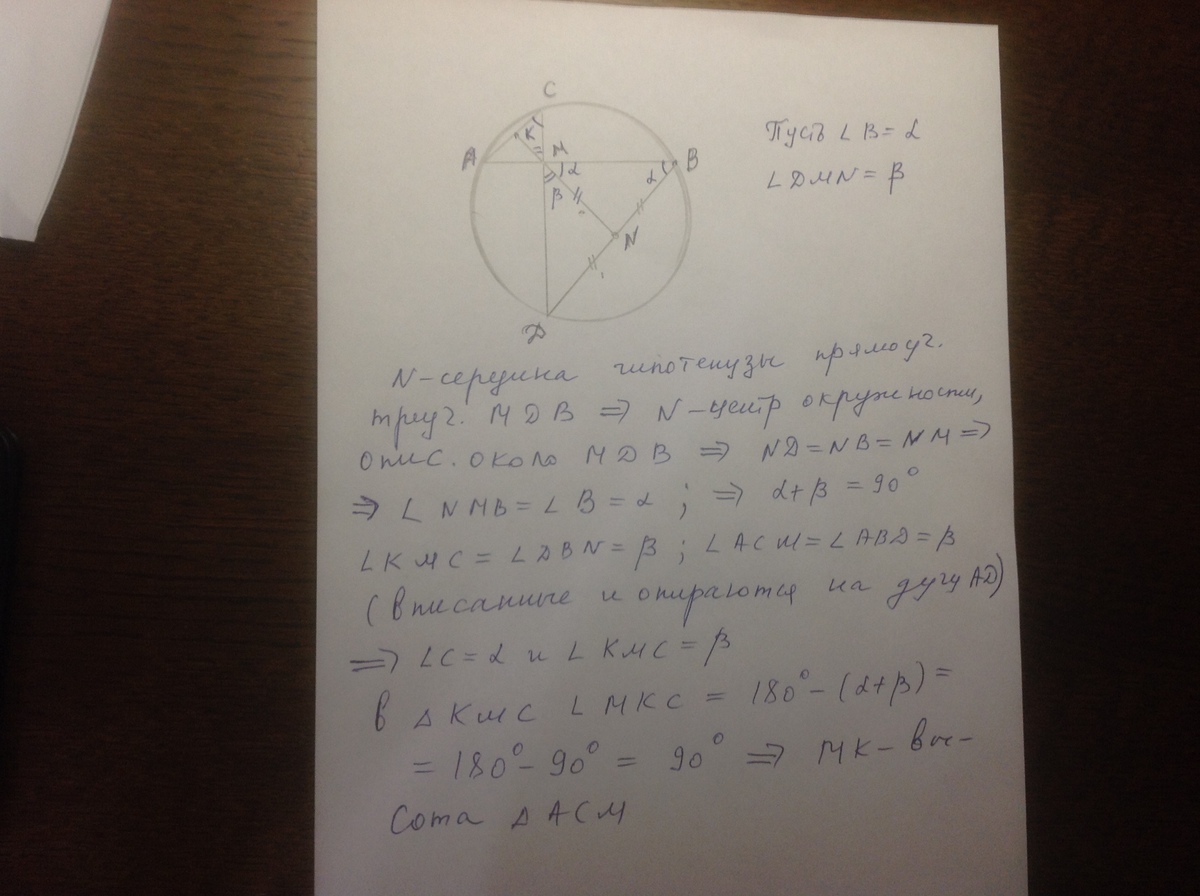 C
К
A
M
B
α
α
β
N
D
Пусть ∠ B = α
∠ DMN = β
N – середина гипотенузы прямоуг.
треуг. MDB ⇒ N – центр окружности,
опис. около MDB ⇒ ND = NB = NM ⇒
⇒ ∠ NMB = ∠ B = α ; ⇒ α + β = 90°
∠ KMC = ∠ DBN = β ; ∠ ACM = ∠ ABD = β
(вписанные и опираются на дугу AD)
⇒ ∠C = α и ∠ KMC = β
В △ KMC ∠ MKC = 180° – (α + β) =
= 180° – 90° = 90° ⇒ MK – вы-
сота △ ACM